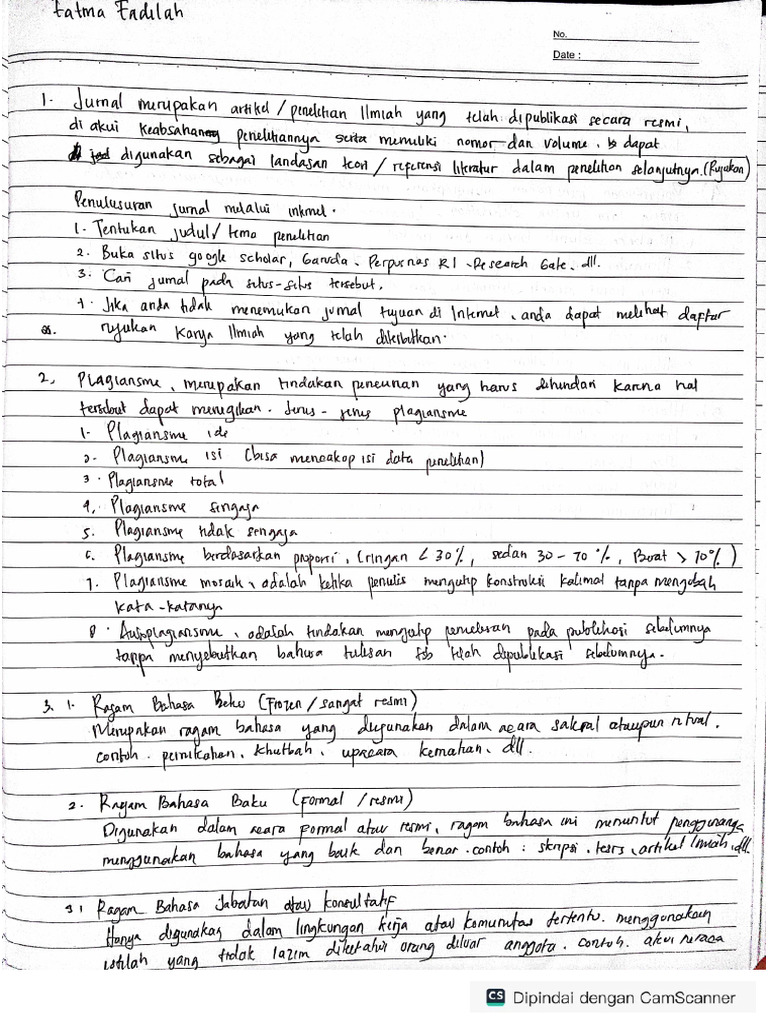 Fatma Fadilah
No.
Date :
1. Jurnal merupakan artikel / penelitian Ilmiah yang telah dipublikasi secara resmi,
di akui keabsahan penelitiannya serta memiliki nomor dan volume. dapat
digunakan sebagai landasan teori / referensi literatur dalam penelitian selanjutnya. (Rujukan)
Penulusuran jurnal melalui internet.
1. Tentukan judul / tema penelitian
2. Buka situs google scholar, Garuda. Perpusnas RI. Research Gate. dll.
3. Cari jurnal pada situs-situs tersebut.
4. Jika anda tidak menemukan jurnal tujuan di Internet, anda dapat melihat daftar
rujukan karya Ilmiah yang telah diterbitkan.
2. Plagiarisme, merupakan tindakan pencurian yang harus dihindari karena hal
tersebut dapat merugikan. Jenis - jenis plagiarisme
1. Plagiarisme ide
2. Plagiarisme isi (bisa mencakop isi data penelitian)
3. Plagiarisme total
4. Plagiarisme sengaja
5. Plagiarisme tidak sengaja
6. Plagiarisme berdasarkan proporsi, (ringan < 30%, sedan 30 - 70 %, Berat > 70%)
7. Plagiarisme mosaik, adalah ketika penulis mengutip konstruksi kalimat tanpa mengubah
kata-katanya
8. Autoplagiarisme, adalah tindakan mengutip pemikiran pada publikasi sebelumnya
tanpa menyebutkan bahwa tulisan tsb telah dipublikasi sebelumnya.
3. 1. Ragam Bahasa Beku (Frozen / sangat resmi)
Merupakan ragam bahasa yang digunakan dalam acara sakral ataupun ritual.
contoh. pernikahan, khutbah, upacara kematian, dll.
2. Ragam Bahasa Baku (formal / resmi)
Digunakan dalam acara formal atau resmi, ragam bahasa ini menuntut penggunanya
menggunakan bahasa yang baik dan benar. contoh : skripsi, tesis, artikel Ilmiah, dll.
3. Ragam Bahasa Jabatan atau konsultatif
Hanya digunakan dalam lingkungan kerja atau komunitas tertentu. menggunakan
istilah yang tidak lazim diketahui orang diluar anggota. contoh. akui neraca
CS Dipindai dengan CamScanner